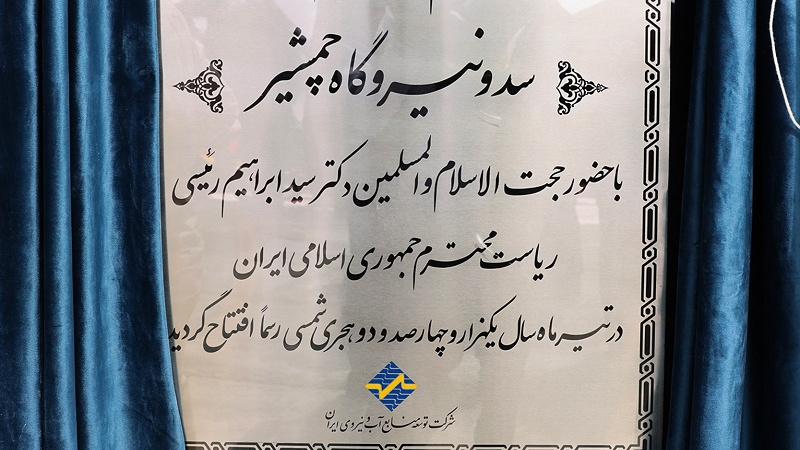 سد و نیروگاه چمشیر
با حضور حجت الاسلام والمسلمین دکتر سید ابراهیم رئیسی
ریاست محترم جمهوری اسلامی ایران
در تیر ماه سال یکهزار و چهارصد و دو هجری شمسی رسماً افتتاح گردید
شرکت توسعه منابع آب و نیروی ایران